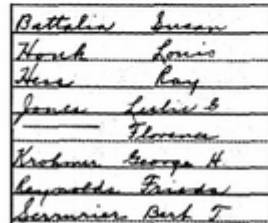 Battalia Susan
Honk Louis
Hess Ray
Jones Leslie E
—— Florence
Krohmer George H
Reynolds Frieda
Serrurier Bert T